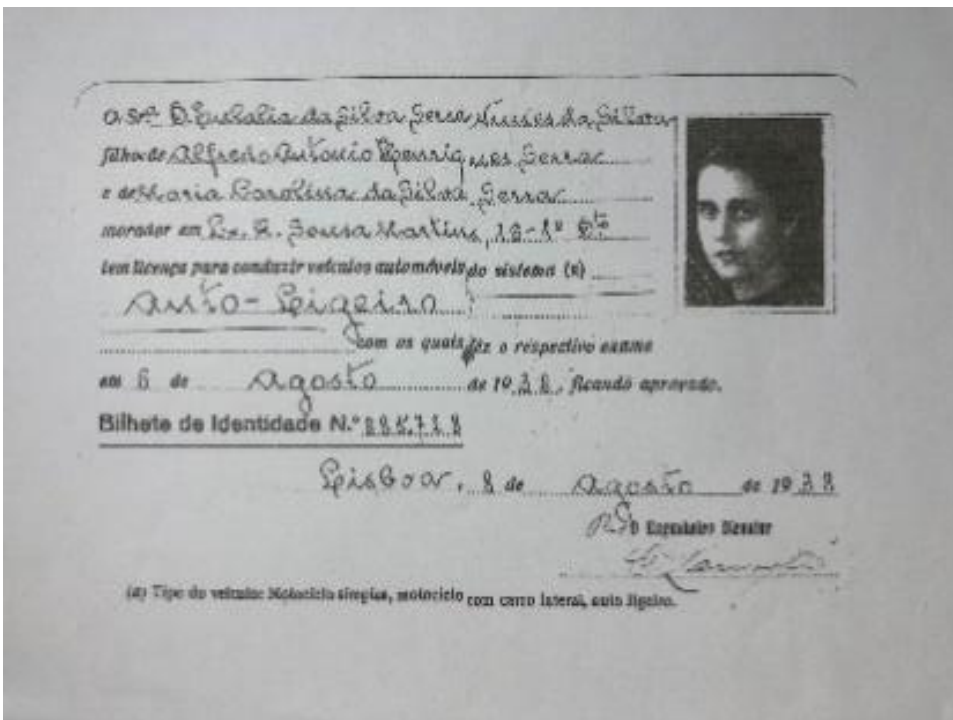 a Srª D. Eulalia da Silva Serra Nunes da Silva
filha de Alfredo Antonio Henriques Serra
e de Maria Carolina da Silva Serra
morador em R. Sousa Martins, 18-1º Dto
tem licença para conduzir veículos automóveis do sistema (a)
Auto-Ligeiro
com os quais fez o respectivo exame
em 6 de Agosto de 1938, ficando aprovado.
Bilhete de Identidade N.º
Lisboa, 8 de Agosto de 1938
O Engenheiro Director
(a) Tipo do veículo: Motociclo simples, motociclo com carro lateral, auto ligeiro.